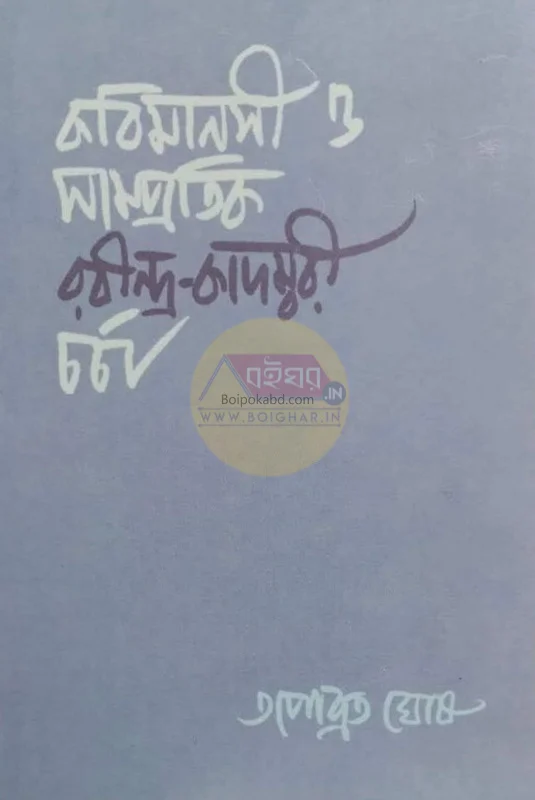 কবিমানসী ও
সাম্প্রতিক
রবীন্দ্র-কাদম্বরী
চর্চা
বইঘর
.IN
Boipokabd.com
WWW.BOIGHAR.IN
তপোব্রত ঘোষ